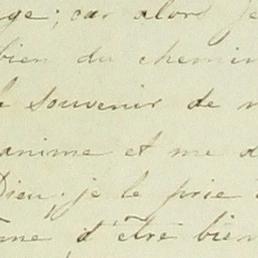 ge; car alors je
bien du chemin
souvenir de
anime et me d
Dieu; je le prie
d'être bien